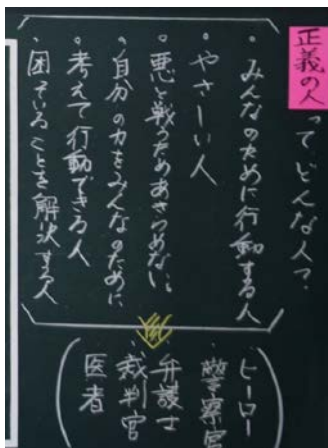 正義の人ってどんな人?
・みんなのために行動する人
・やさしい人
・悪と戦うためあきらめない。
・自分の力をみんなのために
・考えて行動できる人
・困っていることを解決する人
ヒーロー
警察官
弁護士
・裁判官
医者